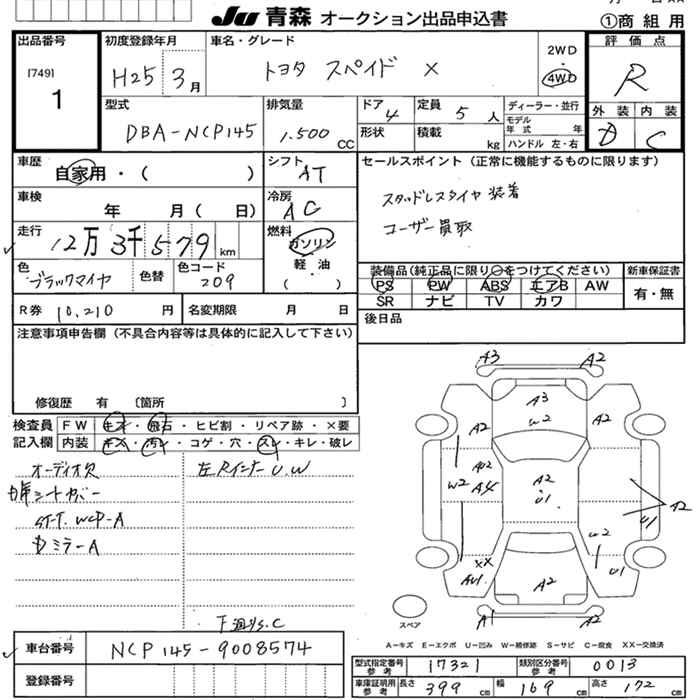 JU 青森 オークション出品申込書
①商 組 用
出品番号
[749]
1
初度登録年月
H25 3月
車名・グレード
トヨタ スペイド X
2WD
4WD
評価点
R
外装 内装
D C
型式
DBA-NCP145
排気量
1.500 CC
ドア 4
定員 5 人
形状
積載 kg
ディーラー・並行
モデル年式 年
ハンドル 左・右
車歴
自家用・( )
シフト
AT
車検
年 月( 日)
冷房
AC
走行
12万3千579km
燃料
ガソリン
軽油
( )
色
ブラックマイカ
色替
色コード
209
R券 10,210 円
名変期限 月 日
セールスポイント(正常に機能するものに限ります)
スタッドレスタイヤ装着
ユーザー買取
装備品(純正品に限り○をつけてください)
PS PW ABS エアB AW
SR ナビ TV カワ
新車保証書
有・無
後日品
注意事項申告欄(不具合内容等は具体的に記入して下さい)
修復歴 有 〔箇所 〕
検査員記入欄
FW キズ・飛石・ヒビ割・リペア跡・×要
内装 キズ・汚レ・コゲ・穴・スレ・キレ・破レ
オーディオ欠
シートカバー
ST-T. WCP-A
Dミラー A
左Rインナー U.W
下廻りS.C
A3 A2
A3
W2
A2 A2
W2 A4
A2
U1
A2
U1
W2
U1
XX
AU1
A2
A1 A2
スペア
A-キズ E-エクボ U-凹み W-補修跡 S-サビ C-腐食 XX-交換済
車台番号 NCP145-9008574
登録番号
型式指定番号 参考 17321
類別区分番号 参考 0013
車庫証明用 参考 長さ 399 cm 幅 169 cm 高さ 172 cm